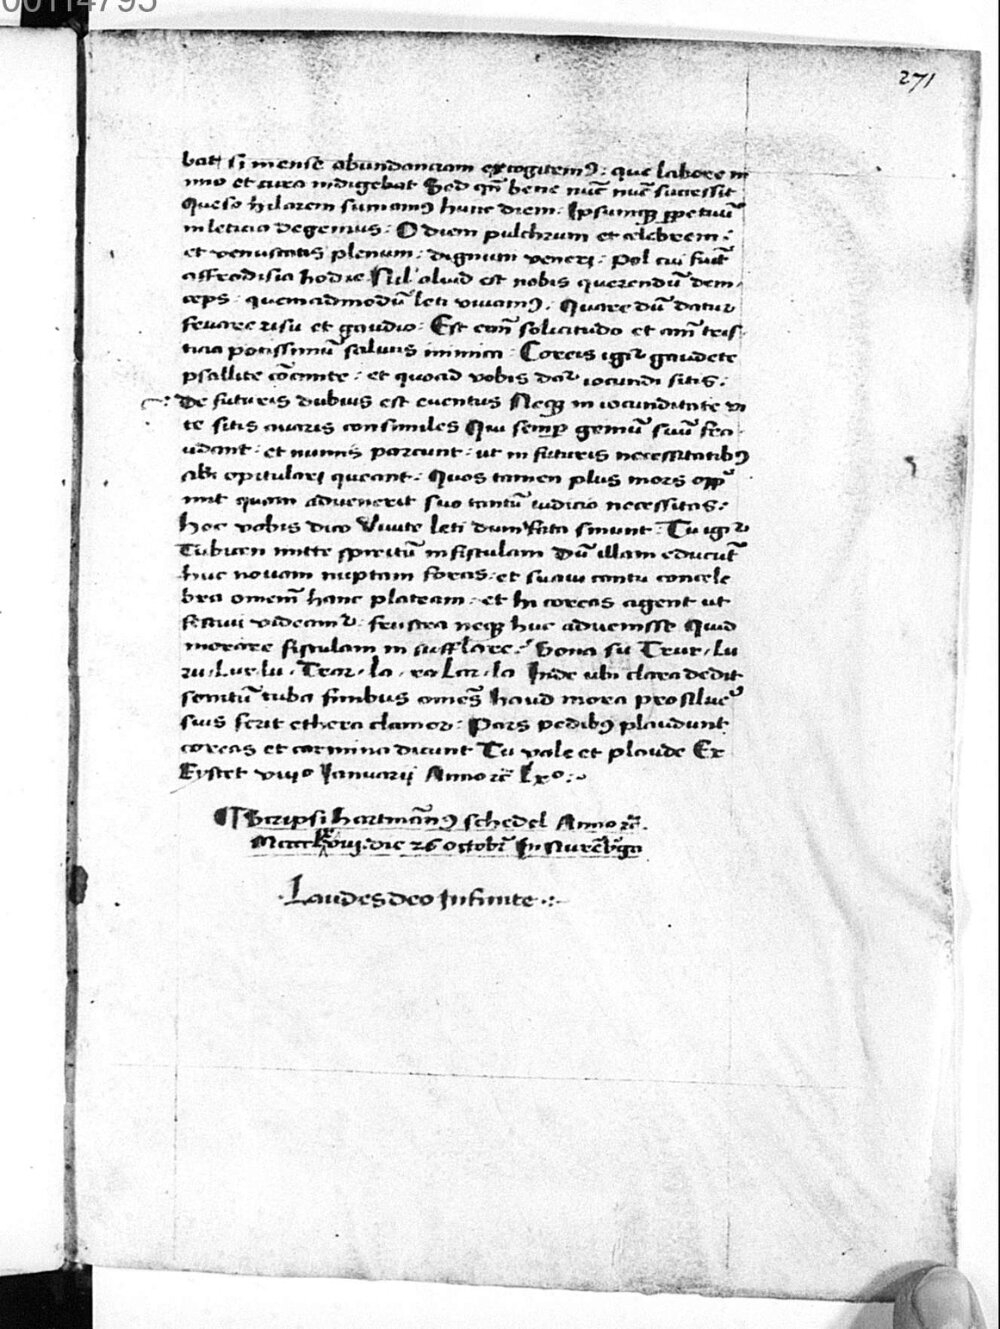 00114795
271
bat si mense abundantiam excogitemus: que labore ni
mio et cura indigebat Sed qn̄ bene nūc nūc successit
queso hilarem sumamus hunc diem: Ipsumqꝫ ꝑpetuū
in leticia degemus: O diem pulchrum et celebrem:
et venustatis plenum: dignum veneri: Pol cui fuit
affrodisia hodie Nil aliud est nobis querendū dein
ceps: quemadmodū leti vivamꝰ: Quare dū datur
risu et gaudio: Est enī solicitudo et animi tris
ticia potissimū salutis inimica: Coreis igitur gaudete
psallite concinite: et quoad vobis datur iocundi sitis:
De futuris dubius est eventus Neqꝫ in iocunditate vi
te sitis avaris consimiles Qui semꝑ gemūt suū
udant: et nimis parcunt: ut in futuris necessitatibꝰ
sibi opitulari queant: Quos tamen plus mors opp
mit quam advenerit suo tantū iudicio necessitas:
hoc vobis dico Vivite leti dum fata sinunt: Tu igitur
Tubicen mitte spiritū in fistulam Dū illam educūt
huc novam nuptam foras: et suavi cantu concele
bra omem̄ hanc plateam: et hi coreas agent ut
festivi videantur: frustra neqꝫ huc advenisse Quid
morare fistulam in sufflare: Sona su Trur. lu
ru. Lur. lu. Trar. la. ra Lar. la Inde ubi clara dedit
sonitū tuba finibus omēs haud mora prosiluere
suis ferit ethera clamor: Pars pedibꝰ plaudunt
coreas et carmina dicunt Tu vale et plaude Ex
Eystet viijo Ianuarij Anno etc̄ Lxo:
¶ Scripsi hartmānꝰ schedel Anno etc̄.
die 26 octobr̄ In Nurēbꝰga
Laudes deo Infinite.: